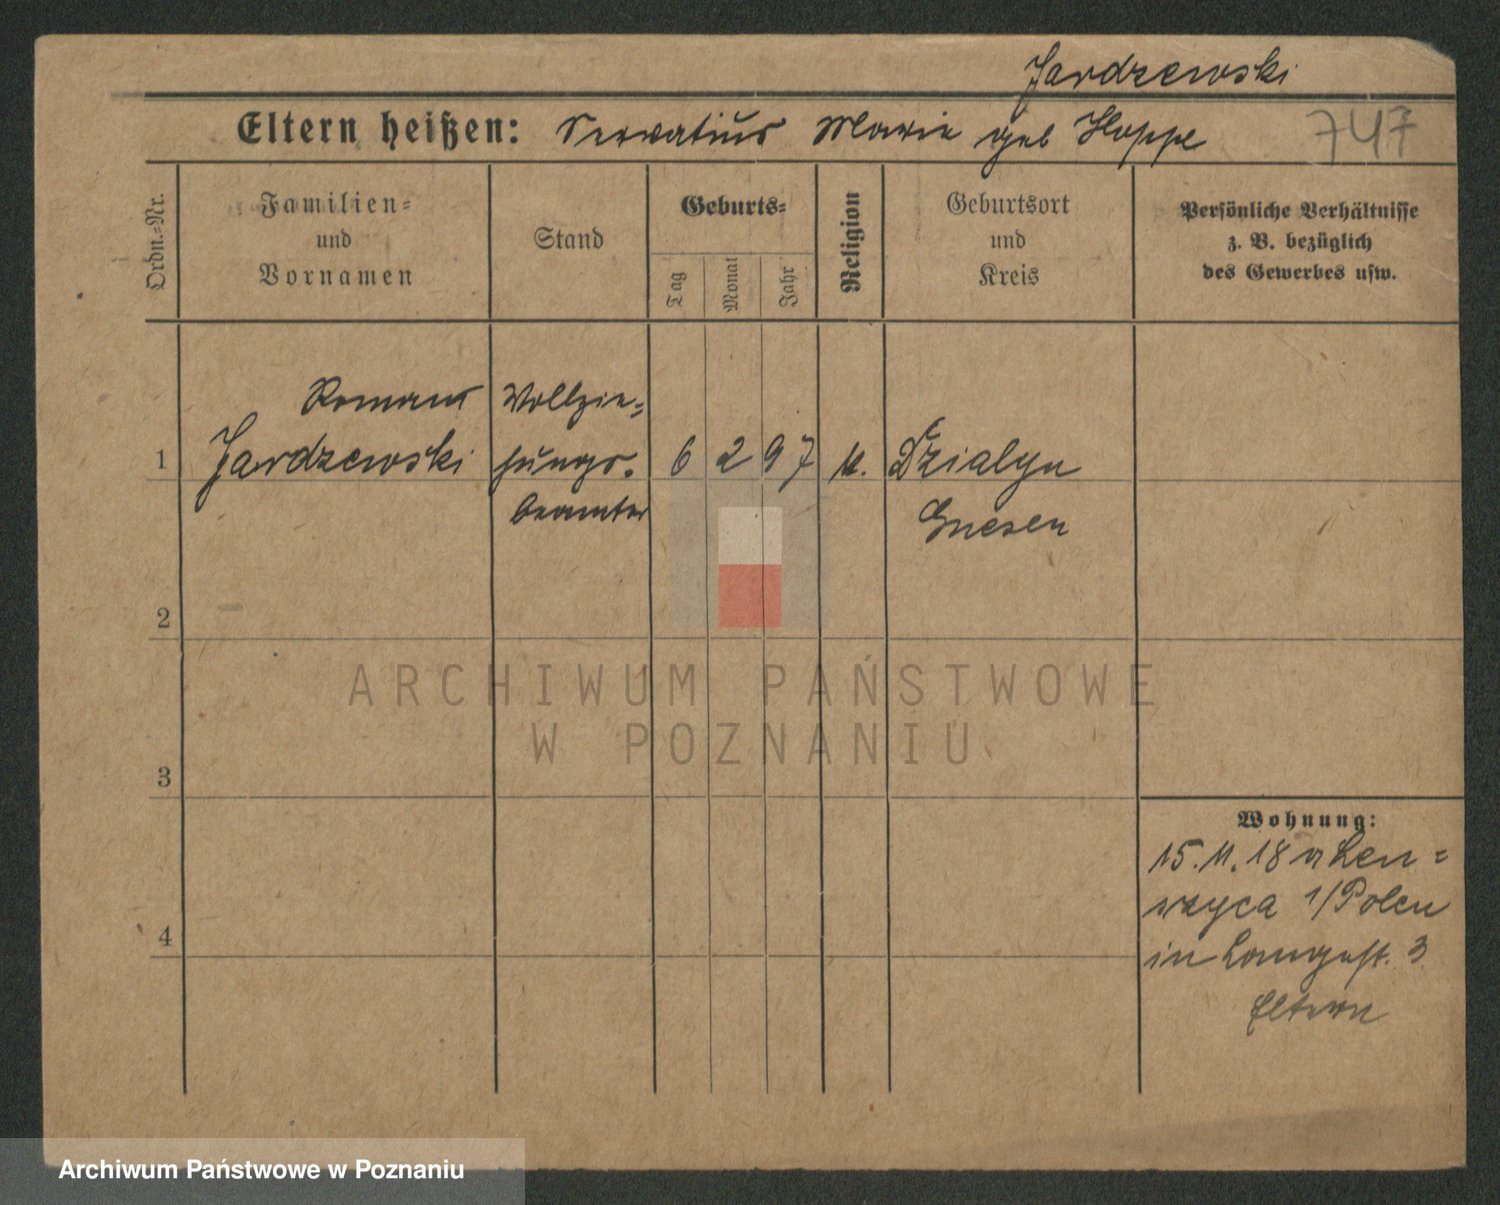 Jardzewski
Eltern heißen: Servatius Marie geb Hoppe 747
Ordn.-Nr.
Familien=
und
Vornamen
Stand
Geburts=
Tag
Monat
Jahr
Religion
Geburtsort
und
Kreis
Persönliche Verhältnisse
z. B. bezüglich
des Gewerbes usw.
Roman Vollzie=
1 Jardzewski hungs. 6 2 97 k. Dzialyn
beamter Gnesen
2
3
4
ARCHIWUM PAŃSTWOWE
W POZNANIU
Wohnung:
15. 11. 18 v Len=
szyca i/Polen
in Langest. 3
Eltern
Archiwum Państwowe w Poznaniu